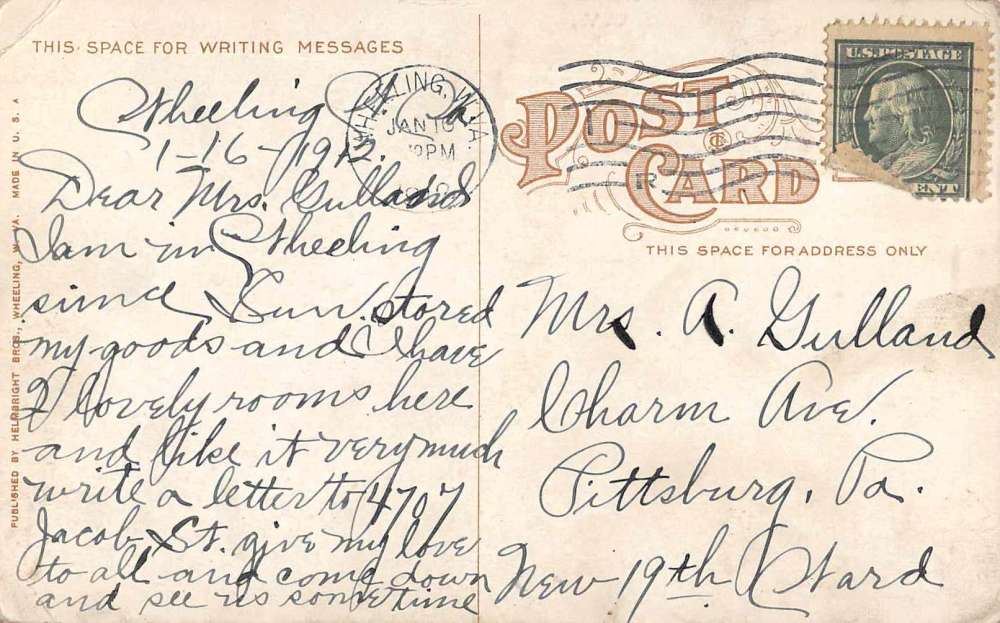 THIS SPACE FOR WRITING MESSAGES
Wheeling
1-16-1912.
Dear Mrs. Gulland
I am in Wheeling
since Sun. stored
my goods and I have
2 lovely rooms here
and like it very much
write a letter to 4707
Jacob St. give my love
to all and come down
and see us sometime
PUBLISHED BY HELMBRIGHT BROS., WHEELING, W. VA. MADE IN U. S. A
WHEELING, W. VA.
JAN 16
PM
U.S. POSTAGE
POST CARD
THIS SPACE FOR ADDRESS ONLY
Mrs. A. Gulland
Charm Ave.
Pittsburg, Pa.
New 19th. Ward